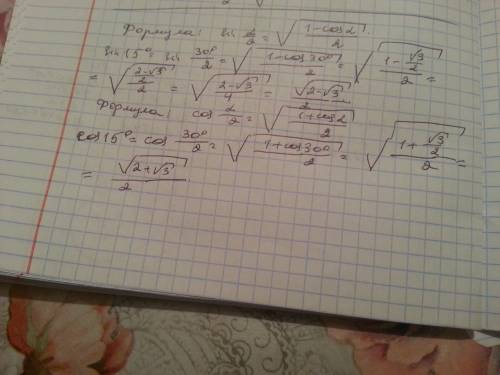 2 √
Формула: sin α/2 = √((1-cosα)/2)
sin 15° = sin 30°/2 = √((1-cos30°)/2) = √((1-√3/2)/2) =
= √(((2-√3)/2)/2) = √((2-√3)/4) = √(2-√3)/2
Формула: cos α/2 = √((1+cosα)/2)
cos15° = cos 30°/2 = √((1+cos30°)/2) = √((1+√3/2)/2) =
= √(2+√3)/2